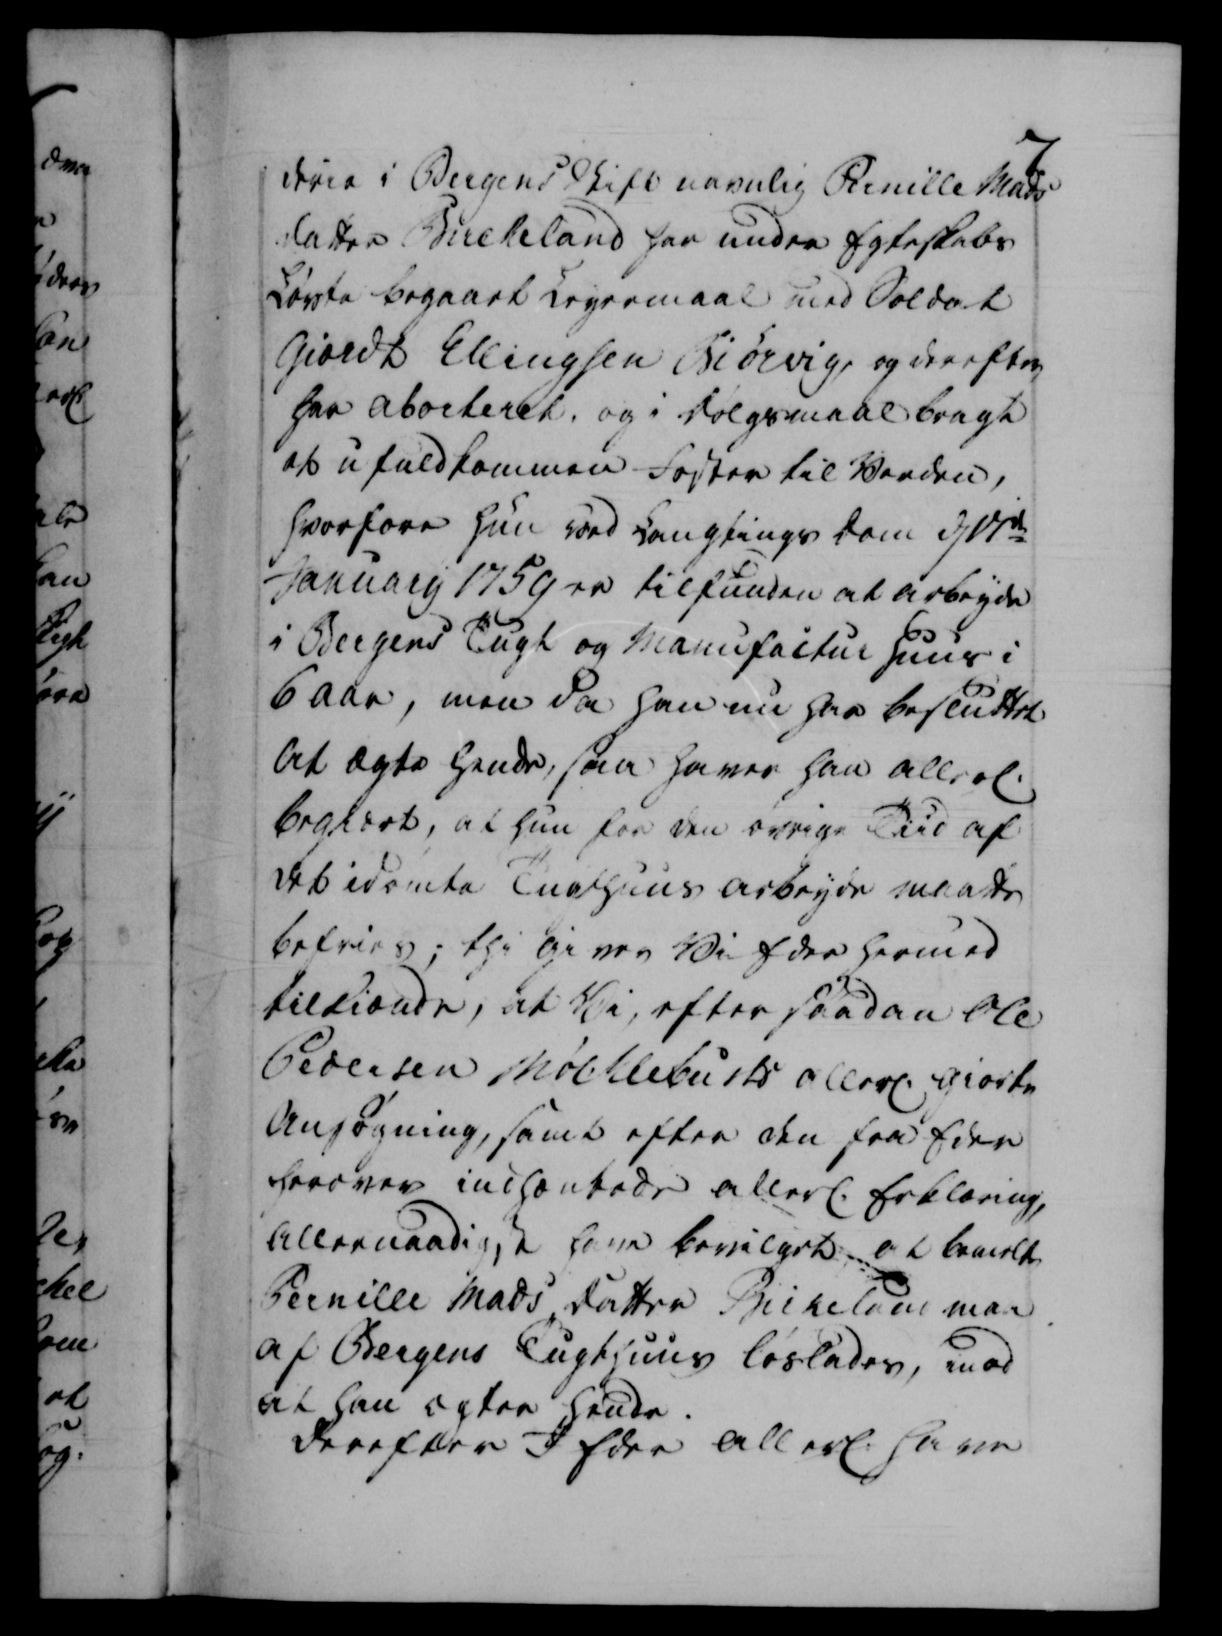 7
derie i Bergens Stift navnlig Pernille Mads
datter Birckeland har under Egteskabs
Løvte begaaet Leyermaal med Soldat
Giordt Ellingsen Biørvig, og derefter
har aborteret. og i dølgsmaal bragt
et ufuldkommen Foster til Verden,
hvorfore hun ved Laugtings Dom
January 1759 er tilfunden at arbeyde
i Bergens Tugt og Manufactur Huus i
6 aar, men da han nu har besluttet
at ægte hende, saa haver han allerl.
begiært, at hun for den øvrige Tiid af
det idømte Tugthuus arbeyde maatte
befries; thi giver Vi Eder hermed
tilkiende, at Vi, efter saadan Ole
Pedersen Møchlebusts allerl. giorte
Ansøgning, samt efter den fra Eder
herover indhentede allerl. Erklæring,
allernaadigst have bevilget, at bemelte
Pernille Mads Datter Birkeland maa
af Bergens Tugthuus løslades, mod
at han ægter hende.
Derefter I Eder allerl. have